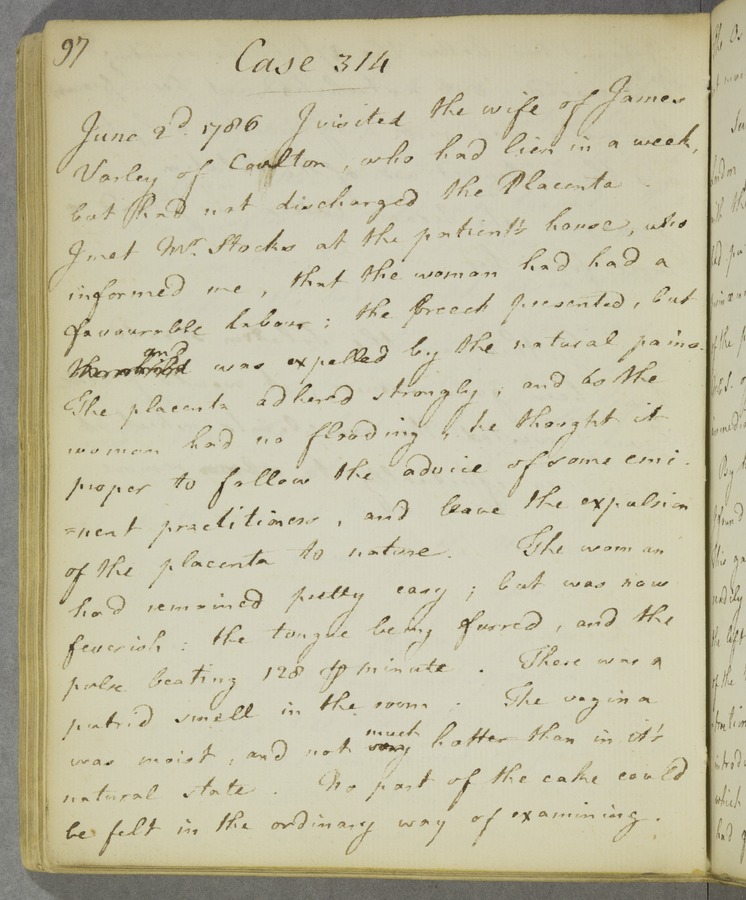 97
Case 314
June 2d. 1786 I visited the wife of James
Varley of Caulton, who had lien in a week,
but had not discharged the Placenta.
I met Mr. Stocks at the patient's house, who
informed me, that the woman had had a
favourable labour; the breech presented, but
and
was expelled by the natural pains.
The placenta adhered strongly; and as the
woman had no flooding, he thought it
proper to follow the advice of some emi-
=nent practitioners, and leave the expulsion
of the placenta to nature. The woman
had remained pretty easy; but was now
feverish: the tongue being furred, and the
pulse beating 128 ⅌ minute. There was a
putrid smell in the room. The vagina
much
was moist, and not very hotter than in it's
natural state. No part of the cake could
be felt in the ordinary way of examining.